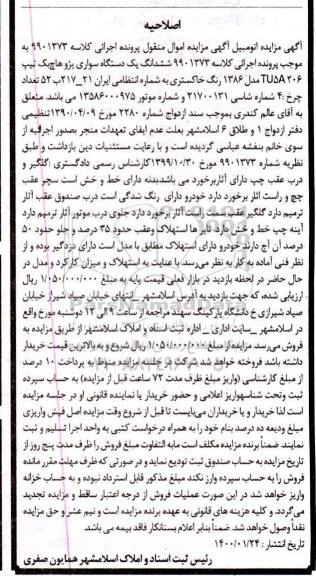 اصلاحیه
آگهی مزایده اتومبیل آگهی مزایده اموال منقول پرونده اجرائی کلاسه ۹۹۰۱۳۷۳ به
موجب پرونده اجرائی کلاسه ۹۹۰۱۳۷۳ ششدانگ یک دستگاه سواری پژو هاچ‌بک تیپ
۲۰۶ TU5A مدل ۱۳۸۶ رنگ خاکستری به شماره انتظامی ایران ۲۱_۲۱۷ب ۵۲ تعداد
چرخ :۴ شماره شاسی ۲۱۷۰۰۱۳۱ و شماره موتور ۱۳۵۸۶۰۰۰۹۷۵ می باشد. متعلق
به آقای عالم کندری بموجب سند ازدواج شماره ۲۲۸۰ مورخ ۱۳۹۰/۰۴/۰۹ تنظیمی
دفتر ازدواج ۱ و طلاق ۶ اسلامشهر بعلت عدم ایفای تعهدات منجر بصدور اجرائیه از
سوی خانم بنفشه عباسی گردیده است و با رعایت مستثنیات دین بازداشت و طبق
نظریه شماره ۹۹۰۱۳۷۳ مورخ ۱۳۹۹/۱۰/۳۰ کارشناس رسمی دادگستری :گلگیر و
درب عقب چپ دارای آثاربرخورد می باشدبدنه دارای خط و خش است سپر عقب
چچ و راست اثار برخورد دارد خودرو دارای رنگ شدگی است درب صندوق عقب آثار
ترمیم دارد گلگیر عقب سمت راست آثار برخورد دارد جلوی درب موتور آثار ترمیم دارد
آینه چپ خط و خش دارد تایر ها استهلاک وعقب حدود ۳۵ درصد و جلو حدود ۵۰
درصد آن آج دارند خودرو دارای استهلاک مطابق با مدل است دارای دزدگیر بوده و از
نظر فنی آماده به کار به نظر می‌رسد. با عنایت به استهلاک و میزان کارکرد و مدل در
حال حاضر در لحظه بازدید در بازار فعلی قیمت پایه به مبلغ ۱/۰۵۰/۰۰۰/۰۰۰ ریال
ارزیابی شده، که جهت بازدید به آدرس اسلامشهر _انتهای خیابان صیاد شیراز خیابان
صیاد شیرازی خ دانشگاه پارکینگ سهند مراجعه از ساعت ۹ الی ۱۲ دوشنبه مورخ واقع
در اسلامشهر _سایت اداری _ اداره ثبت اسناد و املاک اسلامشهر از طریق مزایده به
فروش می‌رسد. مزایده از مبلغ ۱/۰۵۰/۰۰۰/۰۰۰ ریال شروع و به بالاترین قیمت خریدار
داشته باشد فروخته خواهد شد شرکت در جلسه مزایده منوط به پرداخت ۱۰ درصد
از مبلغ کارشناسی (واریز مبلغ ظرف مدت ۷۲ ساعت قبل از مزایده) به حساب سپرده
ثبت وتحت شناسهواریز اعلامی و حضور خریدار یا نماینده قانونی او در جلسه مزایده
است لذا خریدار و یا خریداران می‌بایست تا قبل از شروع وقت مزایده اصل فیش واریزی
مبلغ ودیعه ده درصد بنام خود را به همراه درخواست کتبی به واحد اجرا تسلیم و ثبت
نمایند. ضمنا برنده مزایده مکلف است مابه التفاوت مبلغ فروش را ظرف مدت پنج روز از
تاریخ مزایده به حساب صندوق ثبت تودیع نماید و در صورتی که ظرف مهلت مقرر مانده
فروش را به حساب سپرده وارز نکند مبلغ مذکور قابل استرداد نبوده و به حساب خزانه
واریز خواهد شد. در این صورت عملیات فروش از درجه اعتبار ساقط و مزایده تجدید
می‌گردد. و کلیه هزینه های قانونی به عهده برنده مزایده است و نیم عشر و حق مزایده
نقداً وصول خواهد شد. ضمناً بنابر اعلام بستانکار فاقد بیمه می باشد.
تاریخ انتشار : ۱۴۰۰/۰۱/۲۴
رئیس ثبت اسناد و املاک اسلامشهر همایون صفری